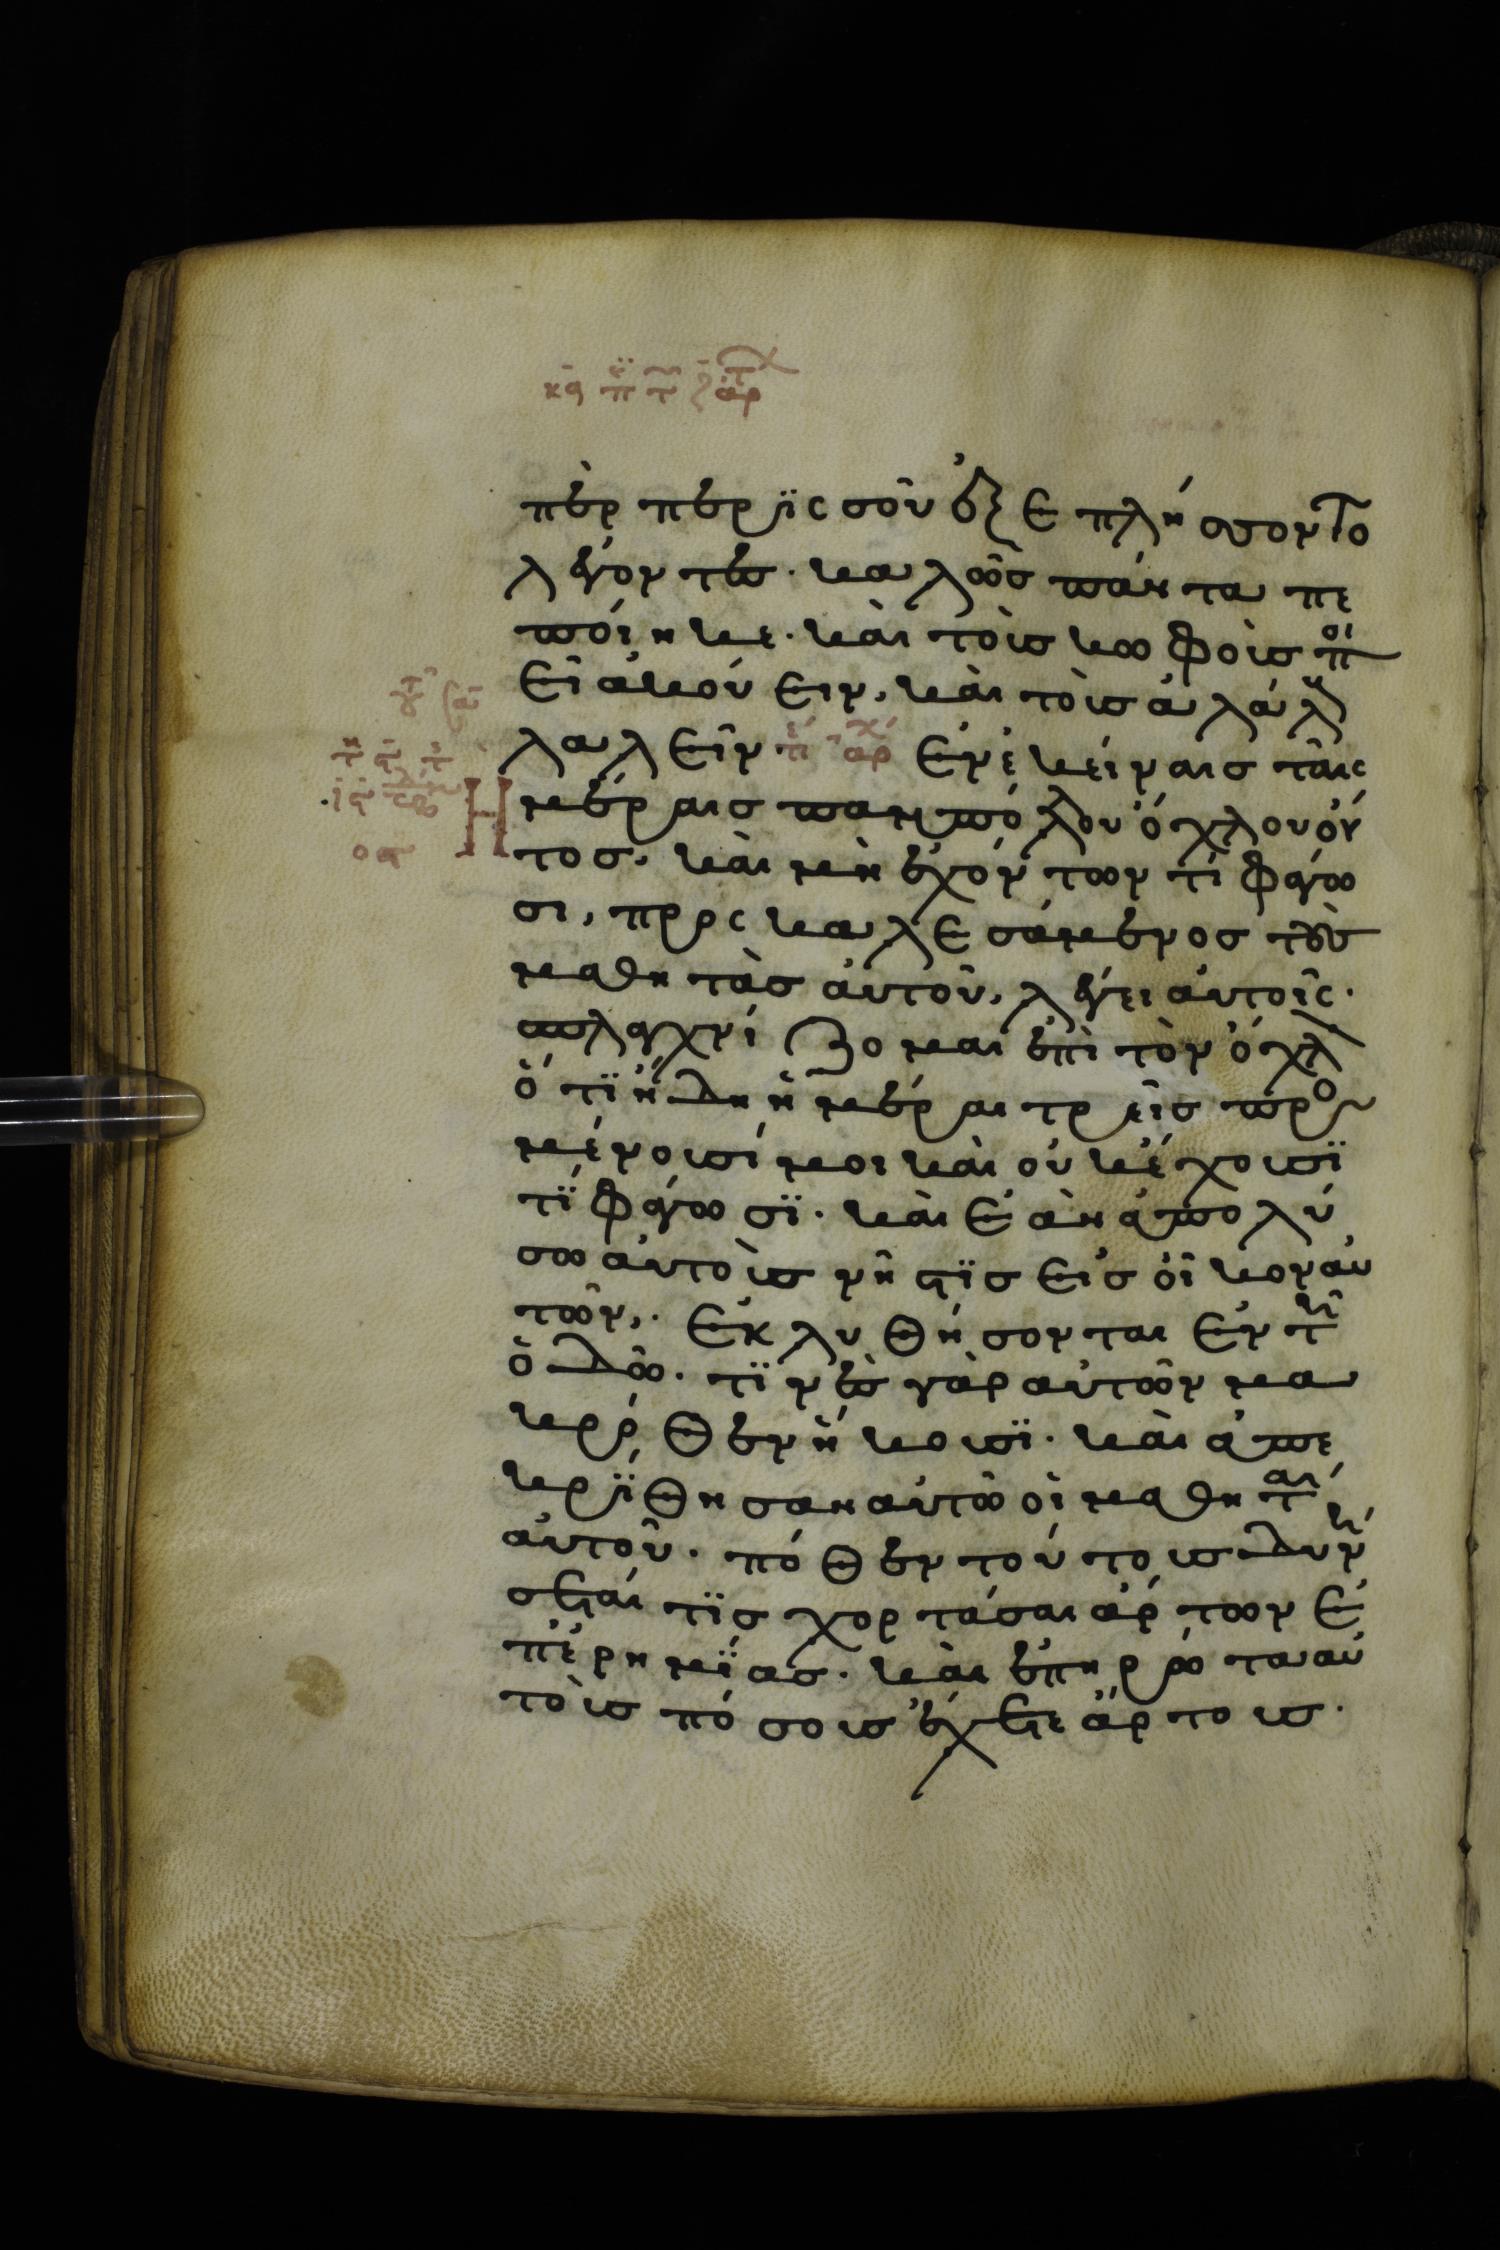 πὲρ περϊςσοῦ ἐξεπλήσσοντο
λέγοντες· καλῶς πάντα πε
ποίηκε· καὶ τοὺς κωφοὺς ποι
εῖ ἀκούειν, καὶ τοὺς ἀλάλ
λαλεῖν Ἐν ἐκείναις ταῖς
ἡμέραις παμπόλου ὄχλου ὄν
τος, καὶ μὴ ἐχόντων τί φάγω
σι, προςκαλεσάμενος τοὺς
μαθητὰς αὐτοῦ, λέγει αὐτοῖς·
σπλαγχνίζομαι ἐπὶ τὸν ὄχλ
ὅτϊ ἤδη ἡμέραι τρεῖς προσ
μένουσί μοι καὶ οὐκ ἔχουσϊ
τΐ φάγωσϊ· καὶ ἐὰν ἀπολύ
σω αὐτοὺς νήστϊς εἰς οἶκον αὐ
τῶν, ἐκλυθήσονται ἐν τῆ
ὁδῶ· τϊνὲς γὰρ αὐτῶν μα
κρόθεν ἥκουσϊ· καὶ ἀπε
κρΐθησαν αὐτῶ οἱ μαθηταί
αὐτοῦ· πόθεν τούτους δυνή
σεταί τϊς χορτάσαι ἄρτων ἐ
π' ἐρημΐας· καὶ ἐπηρώτα αὐ
τοὺς πόσους ἔχετε ἄρτους·